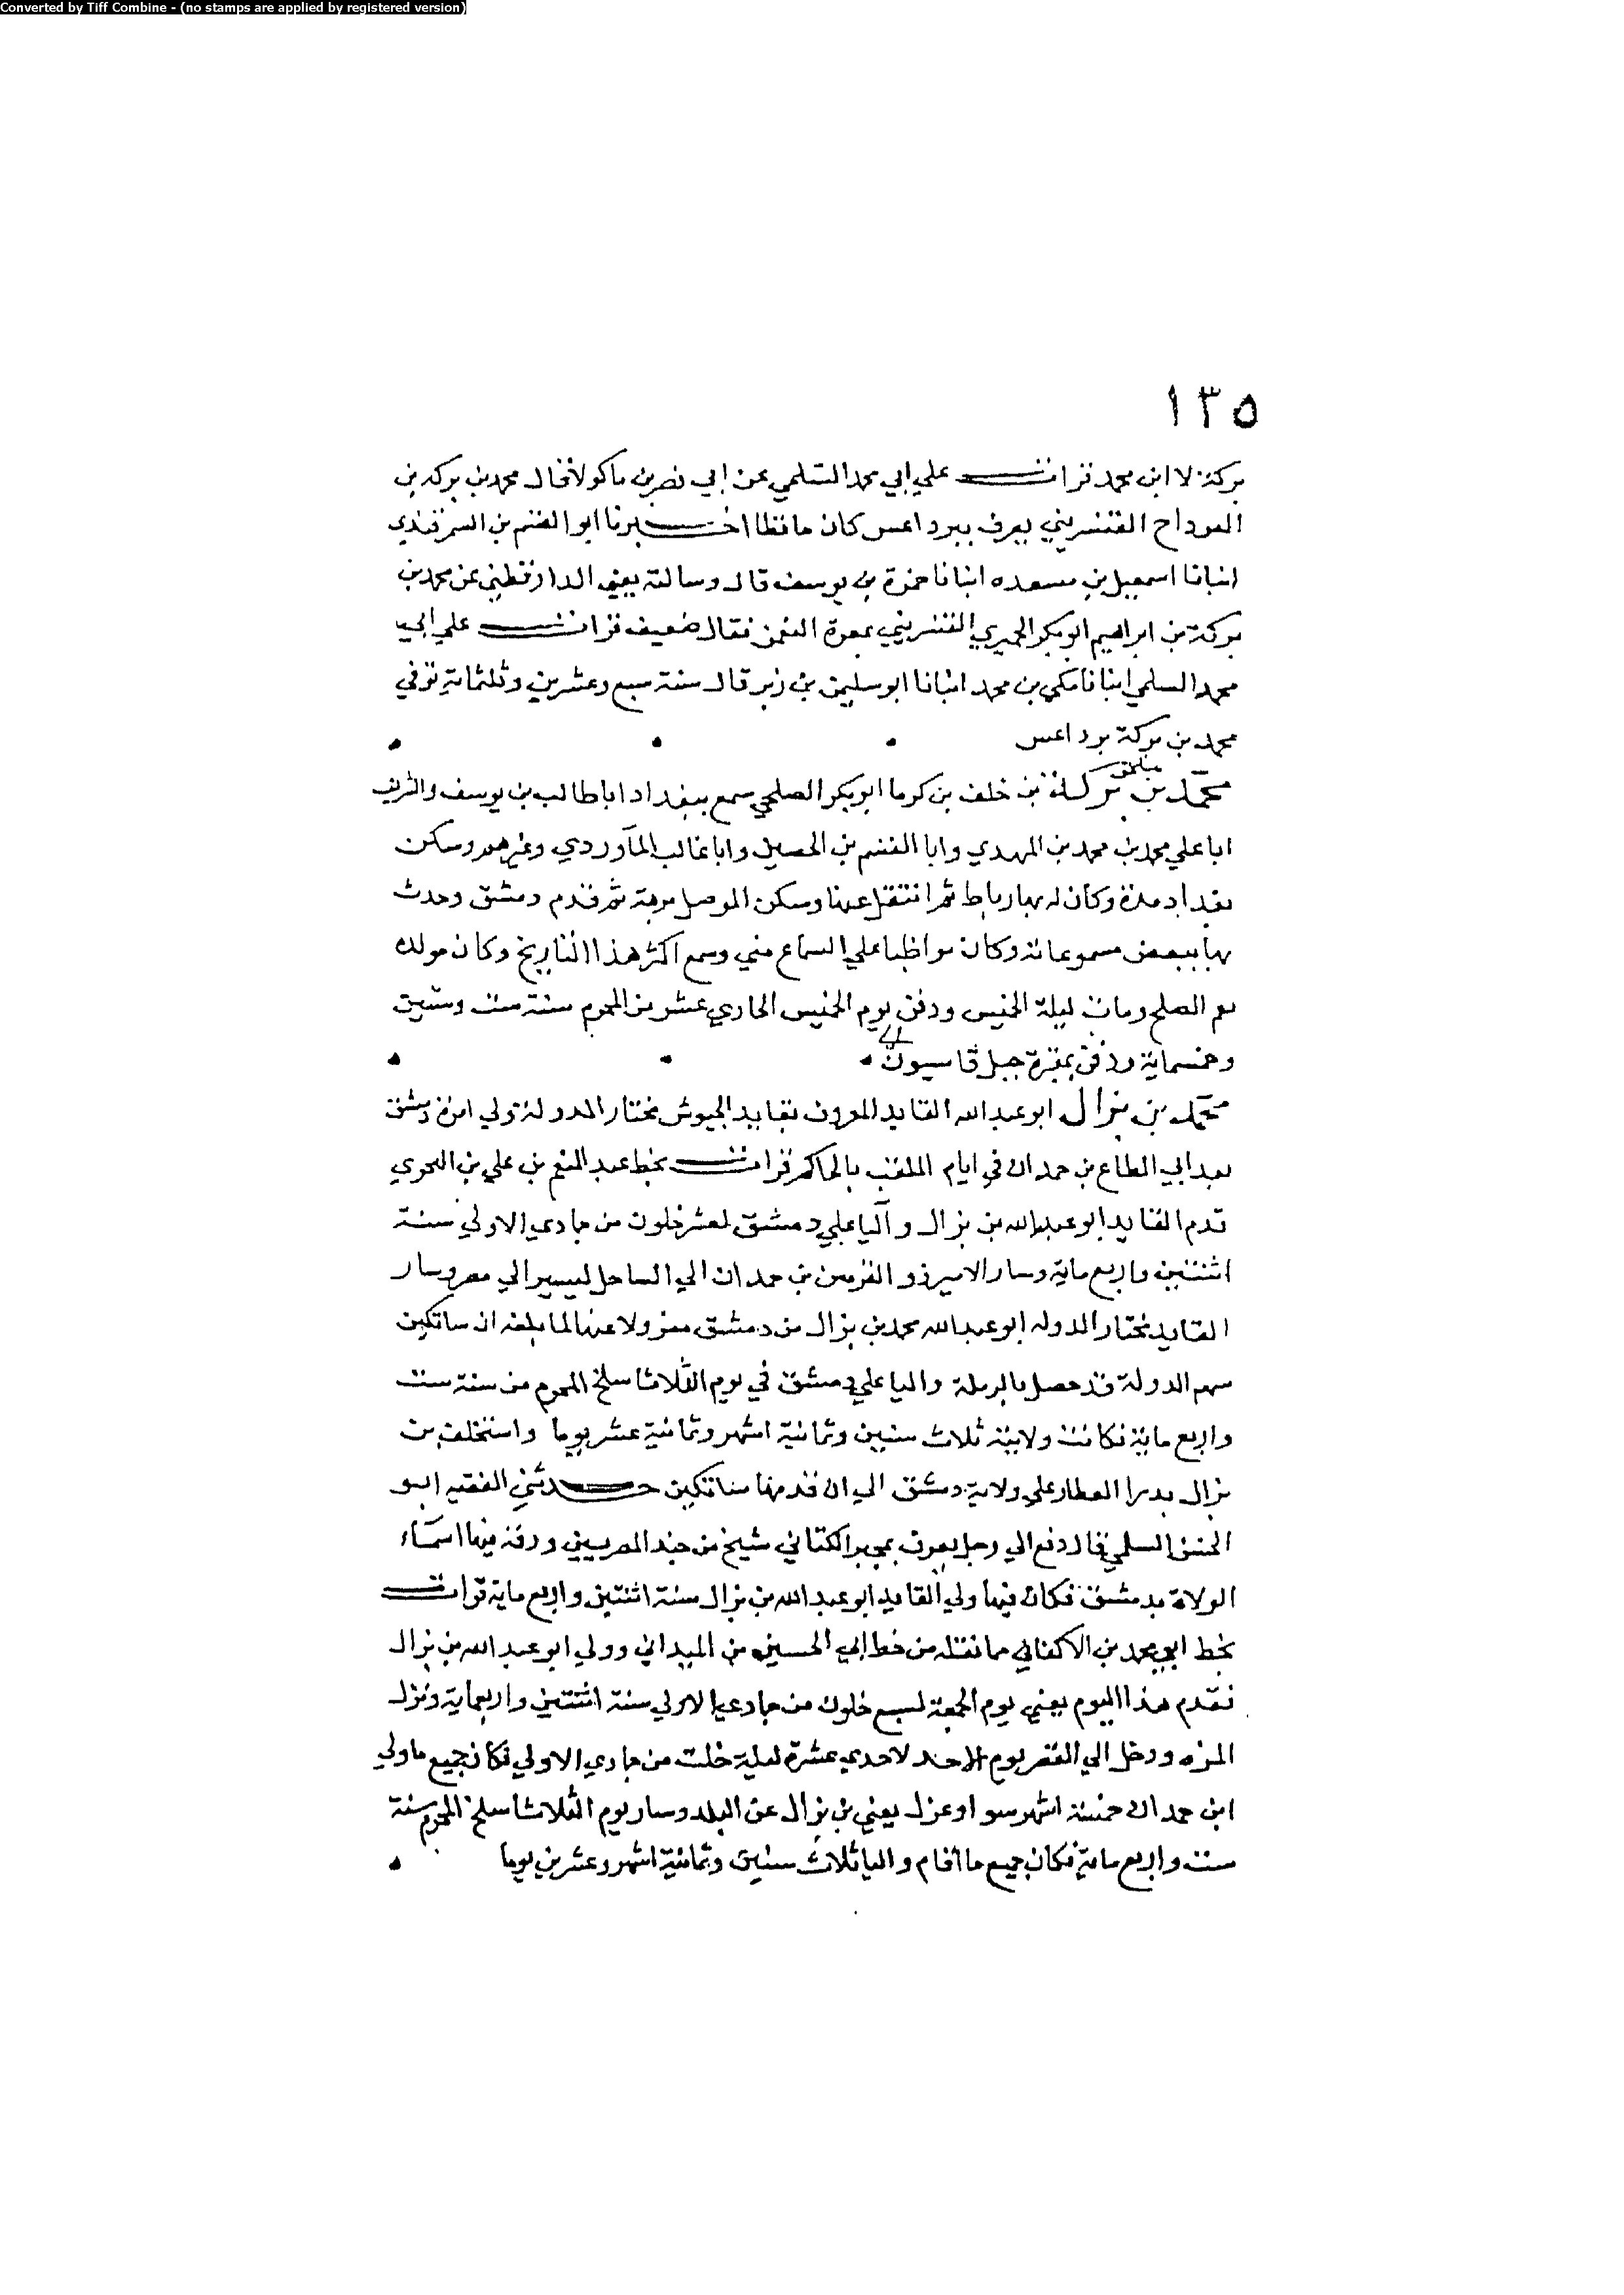 Converted by Tiff Combine - (no stamps are applied by registered version)
١٣٥
بركة لا ابن محمد قرات علي ابي محمد السلمي عن ابي نصر بن ماكولا قال محمد بن بركه بن
الفرداح القنسريني يعرف ببرداعس كان حافظا اخبرنا ابو القسم بن السمرقندي
انبانا اسمعيل بن مسعده انبانا حمزة بن يوسف قال وسالته يعني الدارقطني عن محمد بن
بركة بن ابراهيم ابو بكر الحميري القنسريني بمعرة النعمن فقال ضعيف قرات علي ابي
محمد السلمي انبانا مكي بن محمد انبانا ابو سليمن بن زبر قال سنة سبع وعشرين وثلثماية توفي
محمد بن بركة برداعس
محمد بن بركة بن خلف بن كرما ابو بكر الصلحي سمع ببغداد ابا طالب بن يوسف والشريف
ابا علي محمد بن محمد بن المهدي وابا القسم بن الحصين وابا غالب الماوردي وغيرهم وسكن
بغداد مدة وكان له بها رباط ثم انتقل عنها وسكن الموصل مرة ثم قدم دمشق وحدث
بها ببعض مسموعاته وكان مواظبا علي السماع مني وسمع اكثر هذا التاريخ وكان مولده
بفم الصلح ومات ليلة الخميس ودفن يوم الخميس الحادي عشر من المحرم سنة ست وستين
وخمسماية ودفن بمقبرة جبل قاسيون
محمد بن بزال ابو عبد الله القايد المعروف بقايد الجيوش مختار الدولة تولي امرة دمشق
بعد ابي المطاع بن حمدان في ايام الملقب بالحاكم قرات بخط عبد المنعم بن علي بن النحوي
قدم القايد ابو عبد الله بن بزال واليا علي دمشق لعشر خلون من جمادي الاولي سنة
اثنتين واربع ماية وسار الامير ذو القرنين بن حمدان الي الساحل ليسير الي مصر وسار
القايد مختار الدوله ابو عبد الله محمد بن بزال من دمشق معزولا عنها لما بلغه ان ساتكين
سهم الدولة قد حصل بالرملة واليا علي دمشق في يوم الثلاثا سلخ المحرم من سنة ست
واربع ماية فكانت ولايته ثلاث سنين وثمانية اشهر وثمانية عشر يوما واستخلف بن
بزال بدرا العطار علي ولاية دمشق الي ان قدمها ساتكين حدثني الفقيه ابو
الحسن السلمي قال دفع الي رجل يعرف بمجير الكتاني شيخ من جند المصريين ورقة فيها اسماء
الولاة بدمشق فكان فيها ولي القايد ابو عبد الله بن بزال سنة اثنتين واربع ماية قرات
بخط ابي محمد بن الاكفاني مما نقله من خط ابي الحسين بن الميداني وولي ابو عبد الله بن بزال
فقدم هذا اليوم يعني يوم الجمعة لسبع خلون من جمادي الاولي سنة اثنتين واربعماية ونزل
المزه ودخل الي القصر يوم الاحد لاحدي عشرة ليلة خلت من جمادي الاولي فكان جميع ما ولي
ابن حمدان خمسة اشهر سوا وعزل يعني بن بزال عن البلد وسار يوم الثلاثا سلخ المحرم سنة
ست واربع ماية فكان جميع ما اقام واليا ثلاث سنين وثمانية اشهر وعشرين يوما